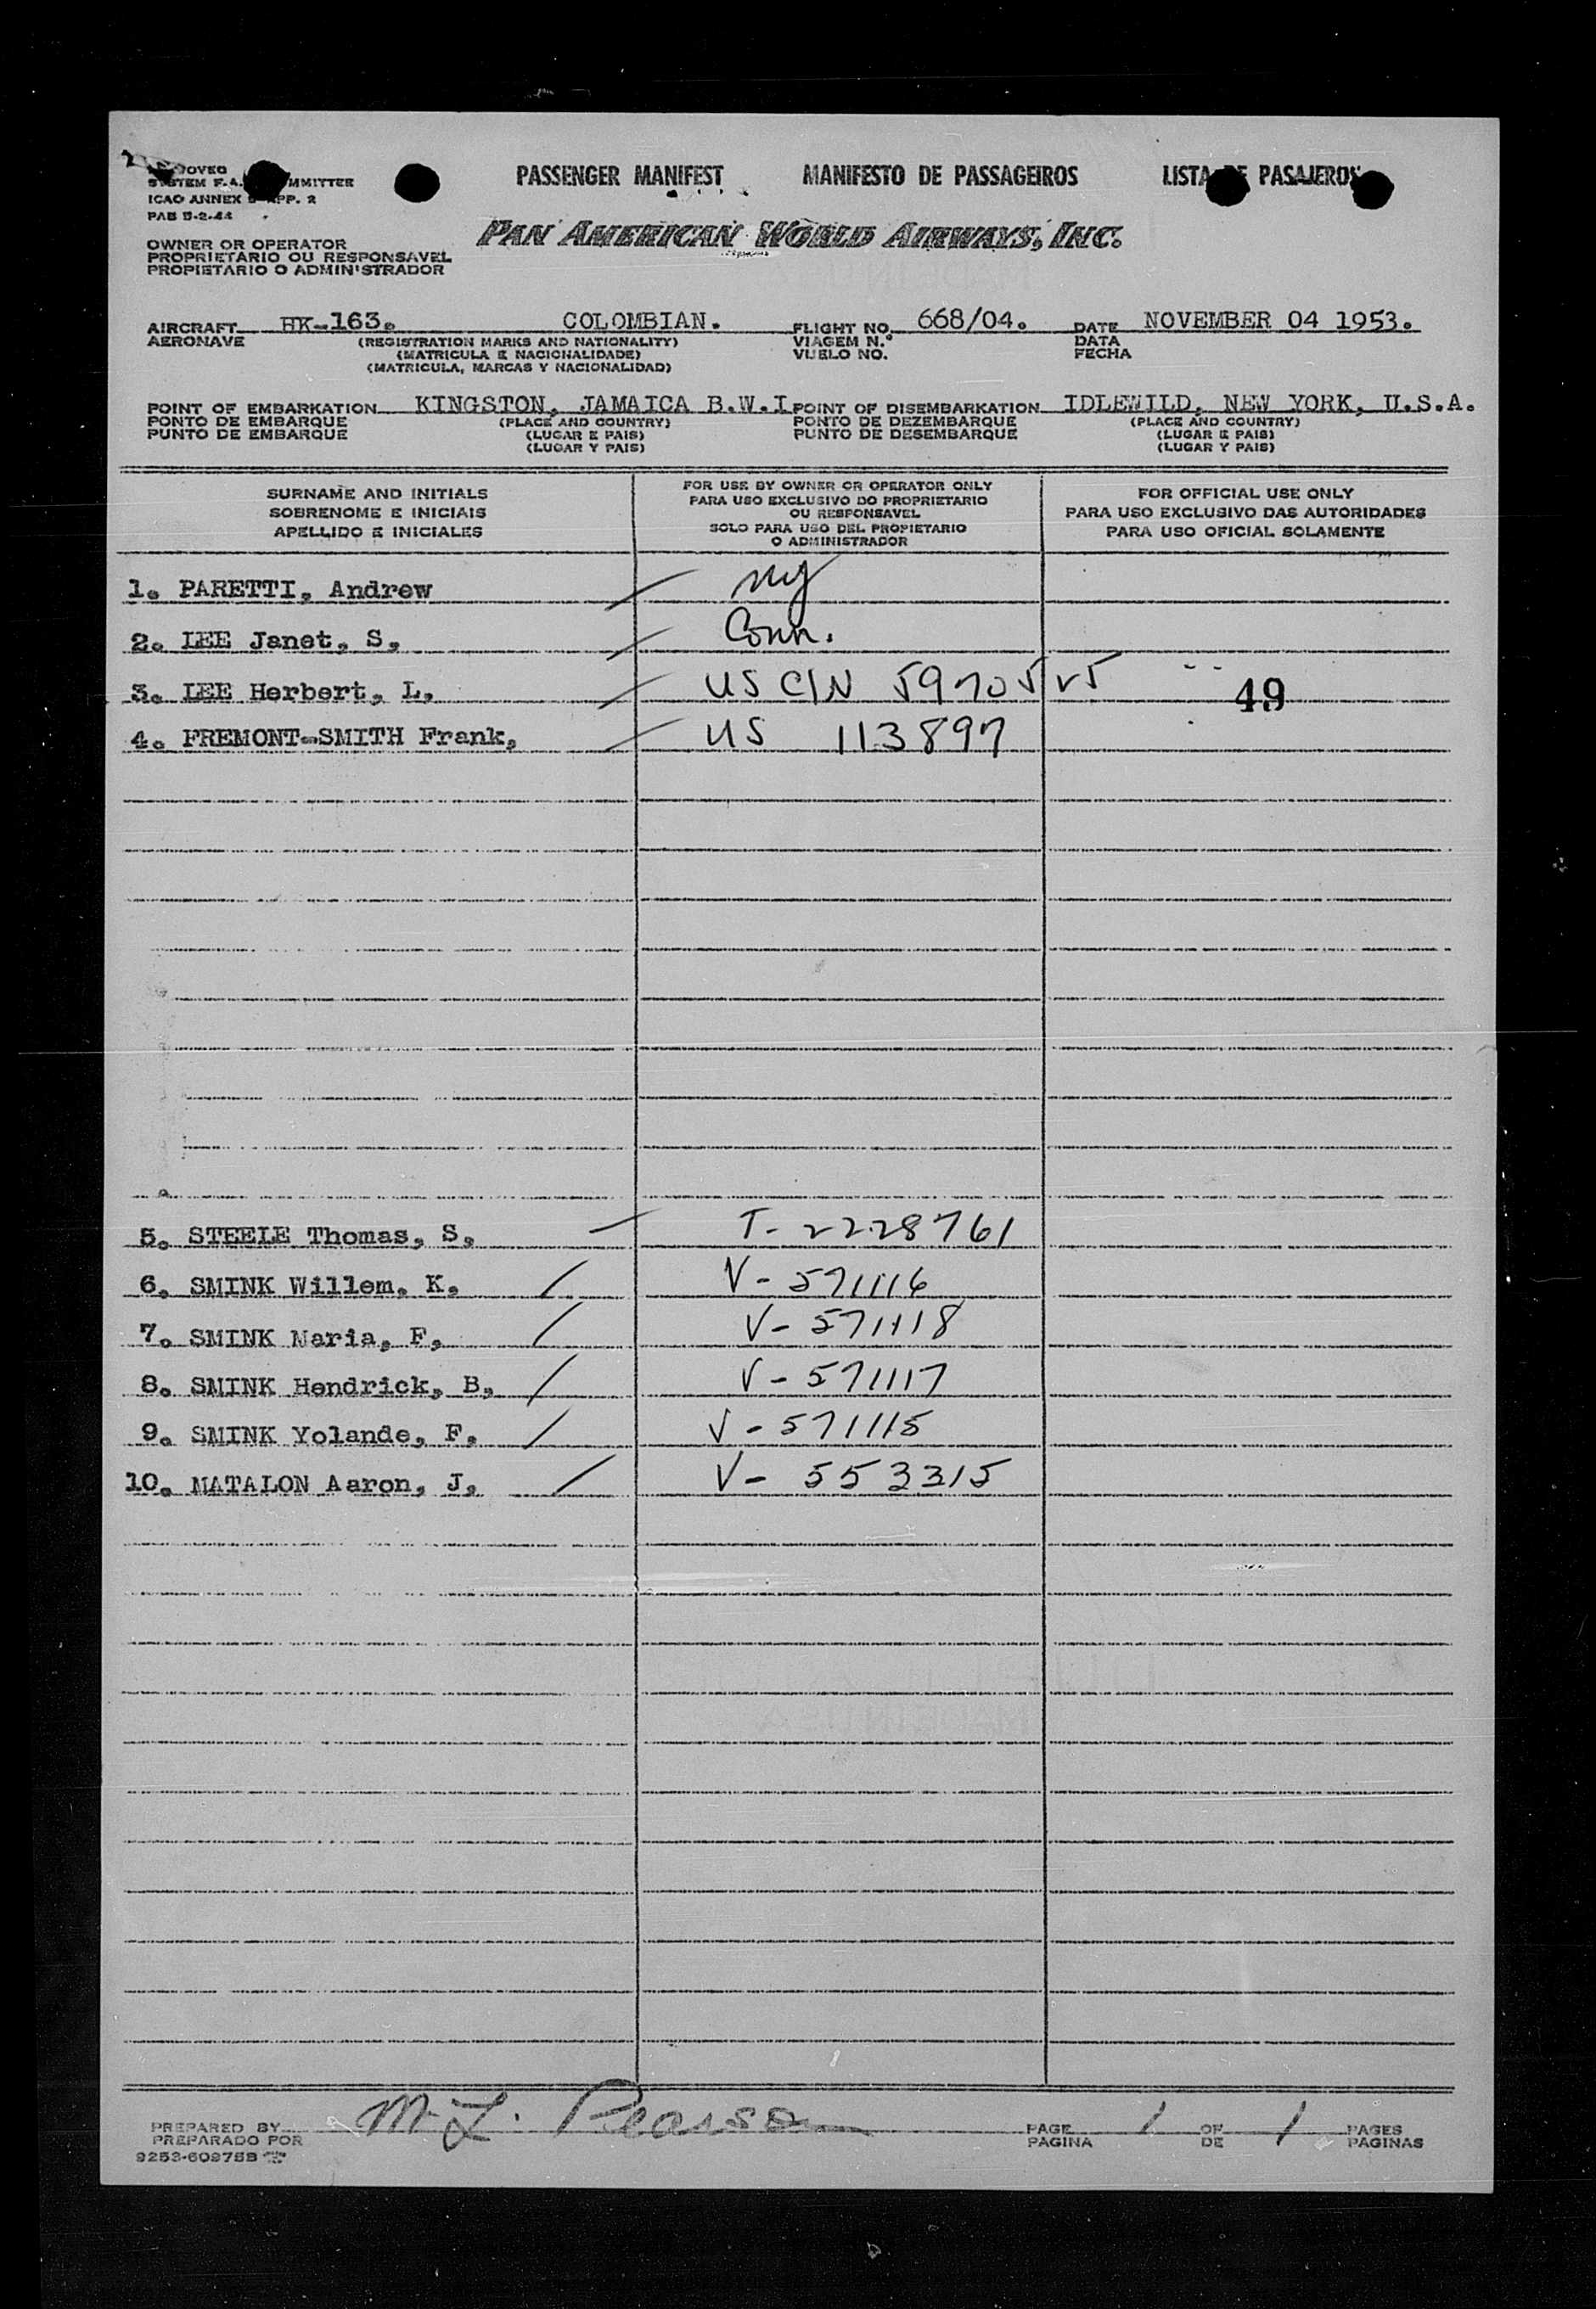 PASSENGER MANIFEST MANIFESTO DE PASSAGEIROS LISTA DE PASAJEROS
SYSTEM F.A.
ICAO ANNEX APP. 2
PAB
PAN AMERICAN WORLD AIRWAYS, INC.
OWNER OR OPERATOR
PROPRIETARIO OU RESPONSAVEL
PROPIETARIO O ADMINISTRADOR
AIRCRAFT HK-163. COLOMBIAN. FLIGHT NO. 668/04. DATE NOVEMBER 04 1953.
AERONAVE (REGISTRATION MARKS AND NATIONALITY) VIAGEM N.º DATA
(MATRICULA E NACIONALIDADE) VUELO NO. FECHA
(MATRICULA, MARCAS Y NACIONALIDAD)
POINT OF EMBARKATION KINGSTON, JAMAICA B.W.I POINT OF DISEMBARKATION IDLEWILD, NEW YORK, U.S.A.
PONTO DE EMBARQUE (PLACE AND COUNTRY) PONTO DE DEZEMBARQUE (PLACE AND COUNTRY)
PUNTO DE EMBARQUE (LUGAR E PAIS) PUNTO DE DESEMBARQUE (LUGAR E PAIS)
(LUGAR Y PAIS) (LUGAR Y PAIS)
SURNAME AND INITIALS
SOBRENOME E INICIAIS
APELLIDO E INICIALES
FOR USE BY OWNER OR OPERATOR ONLY
PARA USO EXCLUSIVO DO PROPRIETARIO
OU RESPONSAVEL
SOLO PARA USO DEL PROPIETARIO
O ADMINISTRADOR
FOR OFFICIAL USE ONLY
PARA USO EXCLUSIVO DAS AUTORIDADES
PARA USO OFICIAL SOLAMENTE
1. PARETTI, Andrew NY
2. LEE Janet, S, Conn.
3. LEE Herbert, L, US CIN 49
4. FREMONT-SMITH Frank, US 113897
5. STEELE Thomas, S, T-2228761
6. SMINK Willem, K, V-571116
7. SMINK Maria, F, V-571118
8. SMINK Hendrick, B, V-571117
9. SMINK Yolande, F, V-571115
10. MATALON Aaron, J, V-553315
PREPARED BY M. L. Pearson PAGE 1 OF 1 PAGES
PREPARADO POR PAGINA DE PAGINAS